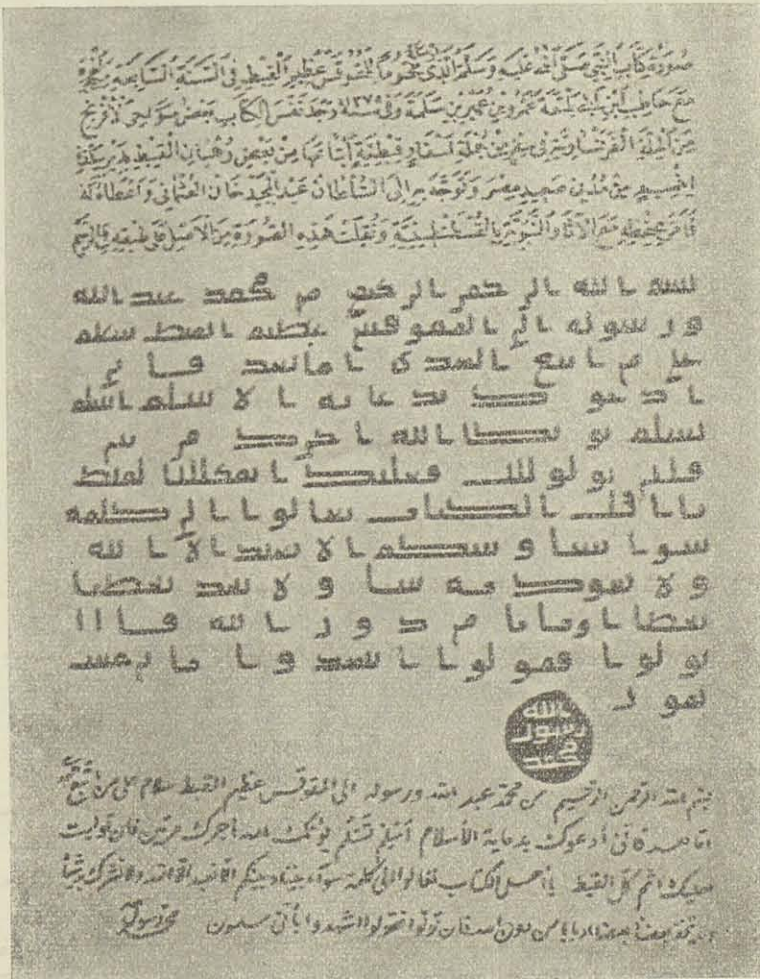 صورة كتاب النبي صلى الله عليه وسلم الذي مختوما للمقوقس عظيم القبط في السنة السابعة
مع حاطب ابن ابي بلتعة عمرو بن عمير بن سلمة وفي سنة وجد نفس الكتاب بعض الافرنج
من جملة اسفار قبطية ابتاعها من بعض رهبان القبط بدير
اخميم من مدن صعيد مصر وتوجه به الى السلطان عبد المجيد خان العثماني وأعطاه له
فأمر بحفظه مع الآثار النبوية بالقسطنطينية ونقلت هذه الصورة من الاصل على طبقه في الرسم
بسم الله الرحمن الرحيم من محمد عبد الله
ورسوله الى المقوقس عظيم القبط سلم
على من اتبع الهدى اما بعد فاني
ادعوك بدعاية الاسلم اسلم
تسلم يوتك الله اجرك مرتين
فان توليت فعليك القبط
يا اهل الكتاب تعالوا الى كلمة
سوا بيننا وبينكم الا نعبد الا الله
ولا نشرك به شيا ولا يتخذ بعضنا
بعضا اربابا من دون الله فان
تولوا فقولوا اشهدوا بانا مسلـ
مون
الله
رسول
محمد
بسم الله الرحمن الرحيم من محمد عبد الله ورسوله الى المقوقس عظيم القبط سلام على من اتبع الهدى
اما بعد فاني أدعوك بدعاية الأسلام أسلم تسلم يؤتك الله أجرك مرتين فان توليت
فعليك اثم كل القبط يا أهل الكتاب تعالوا الى كلمة سواء بيننا وبينكم الا نعبد الا الله ولا نشرك به شيئا
ولا يتخذ بعضنا بعضا اربابا من دون الله فان تولوا فقولوا اشهدوا بأنا مسلمون محمد رسول الله